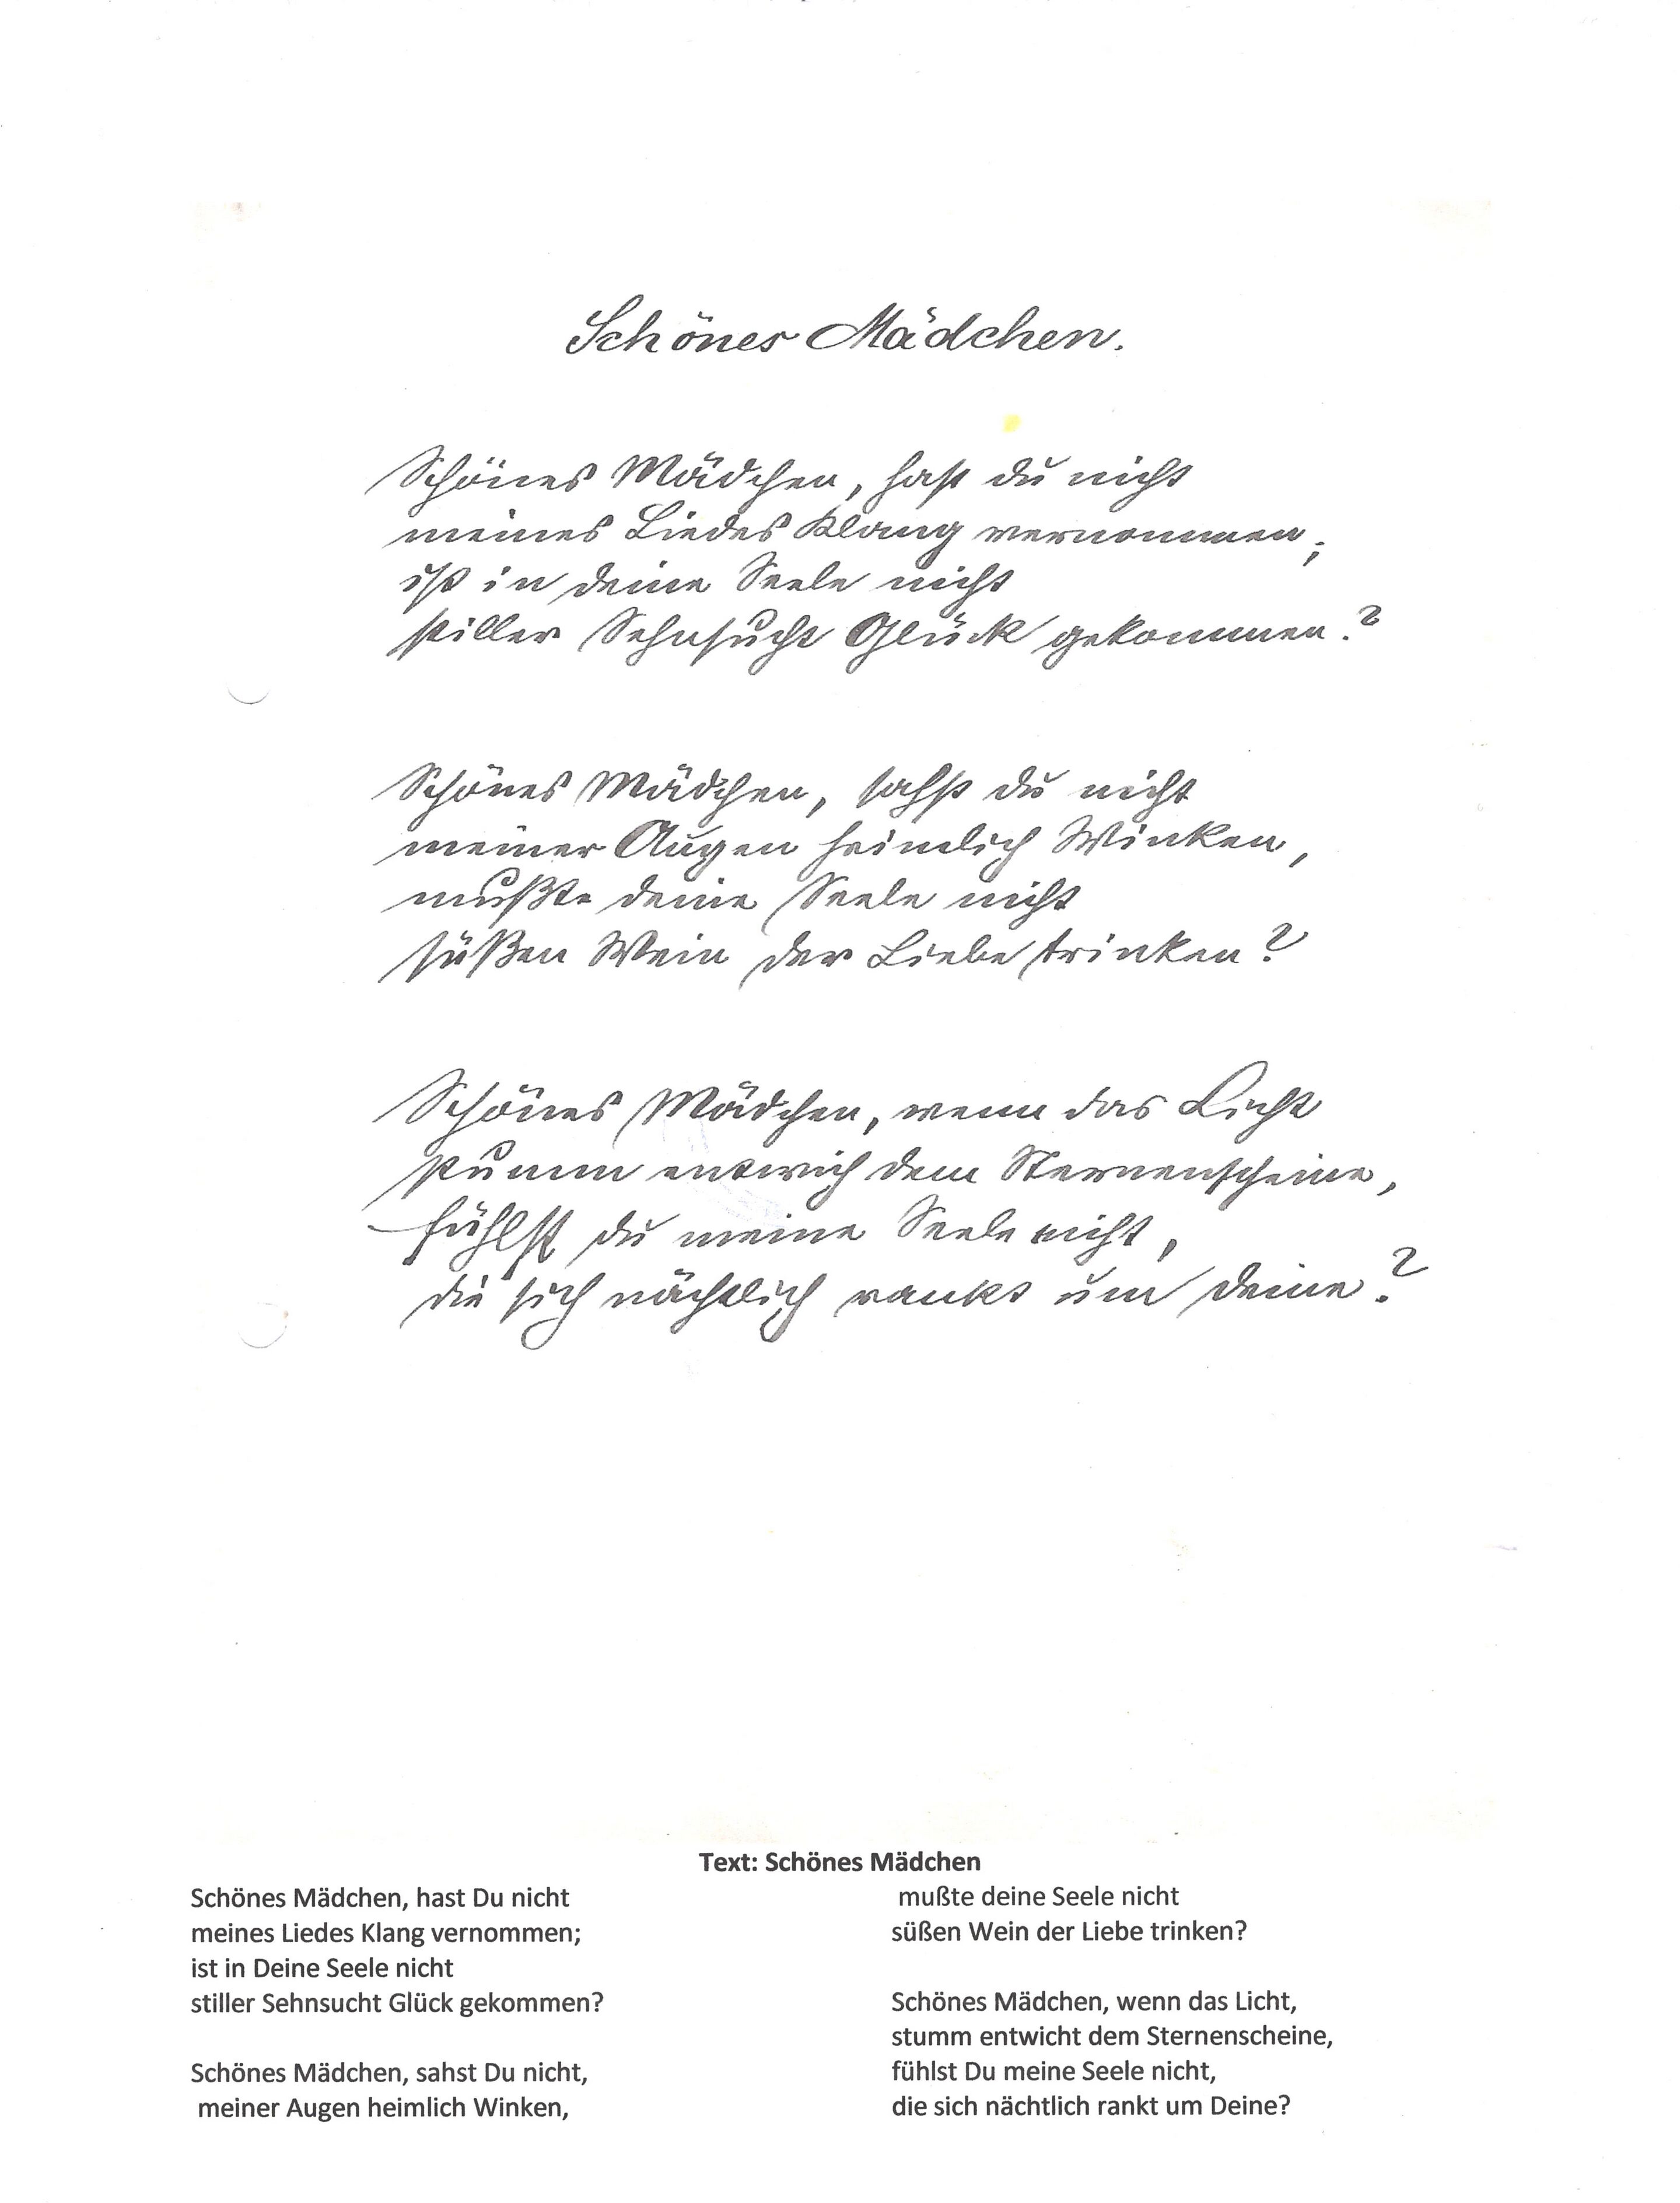 Schönes Mädchen.
Schönes Mädchen, hast du nicht
meines Liedes Klang vernommen;
ist in deine Seele nicht
stiller Sehnsucht Glück gekommen?
Schönes Mädchen, sahst du nicht
meiner Augen heimlich Winken,
mußte deine Seele nicht
süßen Wein der Liebe trinken?
Schönes Mädchen, wenn das Licht
stumm entwich dem Sternenscheine,
fühlst du meine Seele nicht,
die sich nächtlich rankt um deine?
Text: Schönes Mädchen
Schönes Mädchen, hast Du nicht
meines Liedes Klang vernommen;
ist in Deine Seele nicht
stiller Sehnsucht Glück gekommen?
Schönes Mädchen, sahst Du nicht,
meiner Augen heimlich Winken,
mußte deine Seele nicht
süßen Wein der Liebe trinken?
Schönes Mädchen, wenn das Licht,
stumm entwicht dem Sternenscheine,
fühlst Du meine Seele nicht,
die sich nächtlich rankt um Deine?